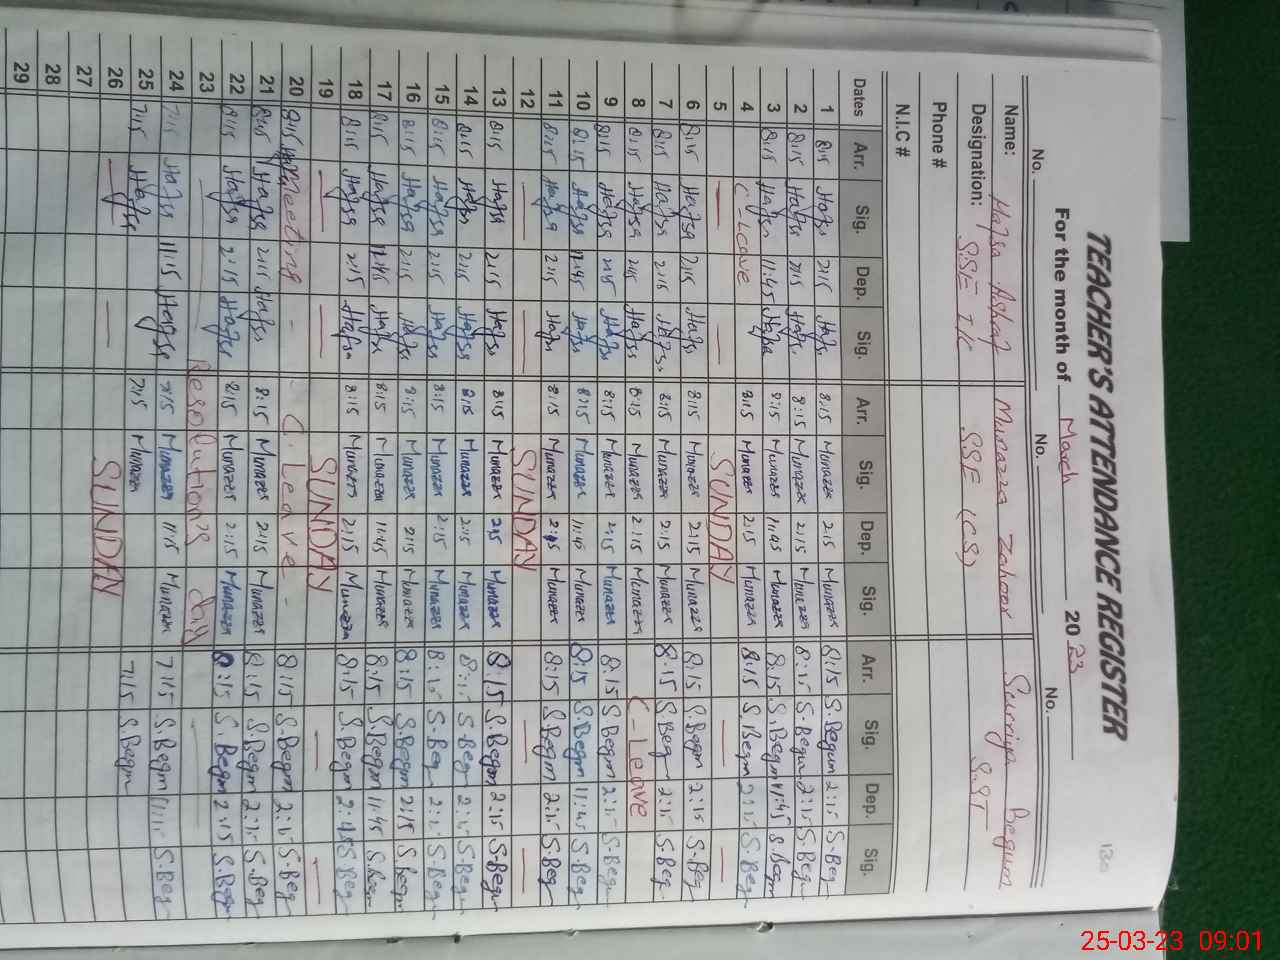 TEACHER'S ATTENDANCE REGISTER
130
For the month of March 2023
No. No. No.
Name: Hafsa Ashraf Munazza Zahoor Surriya Begum
Designation: S.S.E I/C SSE (CS) S.S.T
Phone #
N.I.C #
Dates Arr. Sig. Dep. Sig. Arr. Sig. Dep. Sig. Arr. Sig. Dep. Sig.
1 8:15 Hafsa 2:15 Hafsa 8:15 Munazza 2:15 Munazza 8:15 S.Begum 2:15 S.Beg
2 8:15 Hafsa 2:15 Hafsa 8:15 Munazza 2:15 Munazza 8:15 S.Begum 2:15 S.Beg
3 8:15 Hafsa 11:45 Hafsa 8:15 Munazza 11:45 Munazza 8:15 S.Begm 11:45 S.Begm
4 C-Leave 8:15 Munazza 2:15 Munazza 8:15 S.Begm 2:15 S.Beg
5 SUNDAY
6 8:15 Hafsa 2:15 Hafsa 8:15 Munazza 2:15 Munazza 8:15 S.Begm 2:15 S.Beg
7 8:15 Hafsa 2:15 Hafsa 8:15 Munazza 2:15 Munazza 8:15 S.Beg 2:15 S.Beg
8 8:15 Hafsa 2:15 Hafsa 8:15 Munazza 2:15 Munazza C-Leave
9 8:15 Hafsa Hafsa 8:15 Munazza 2:15 Munazza 8:15 S.Begm 2:15 S.Beg
10 8:15 Hafsa Hafsa 8:15 Munazza 11:45 Munazza 8:15 S.Begm 11:45 S.Beg
11 8:15 Hafsa 2:15 Hafsa 8:15 Munazza 2:15 Munazza 8:15 S.Begm 2:15 S.Beg
12 SUNDAY
13 8:15 Hafsa 2:15 Hafsa 8:15 Munazza 2:15 Munazza 8:15 S.Begm 2:15 S.Begm
14 8:15 Hafsa 2:15 Hafsa 8:15 Munazza 2:15 Munazza 8:15 S.Beg 2:15 S.Beg
15 8:15 Hafsa 2:15 Hafsa 8:15 Munazza 2:15 Munazza 8:15 S.Beg 2:15 S.Beg
16 8:15 Hafsa 2:15 Hafsa 8:15 Munazza 2:15 Munazza 8:15 S.Begm 2:15 S.Begm
17 8:15 Hafsa Hafsa 8:15 Munazza 11:45 Munazza 8:15 S.Begm 11:45 S.Begm
18 8:15 Hafsa 2:15 Hafsa 8:15 Munazza 2:15 Munazza 8:15 S.Begm S.Beg
19 SUNDAY
20 8:15 Meeting - - C. Leave - 8:15 S.Begm 2:15 S.Beg
21 8:15 Hafsa 2:15 Hafsa 8:15 Munazza 2:15 Munazza 8:15 S.Begm 2:15 S.Beg
22 8:15 Hafsa 2:15 Hafsa 8:15 Munazza 2:15 Munazza 8:15 S.Begm 2:15 S.Begm
23 Resolution's day
24 7:15 Hafsa 11:15 Hafsa 7:15 Munazza 11:15 Munazza 7:15 S.Begm 11:15 S.Beg
25 7:15 Hafsa 7:15 Munazza 7:15 S.Begm
26 SUNDAY
27
28
29
25-03-23 09:01